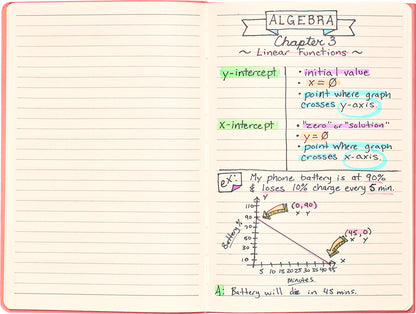 ALGEBRA
Chapter 3
~ Linear Functions ~
y-intercept
• initial value
• x = Ø
• point where graph
crosses y-axis.
x-intercept
• "zero" or "solution"
• y = Ø
• point where graph
crosses x-axis.
ex: My phone battery is at 90%
& loses 10% charge every 5 min.
Y
110
90
70
50
30
10
Battery %
(0,90)
X Y
(45,0)
X Y
X
5 10 15 20 25 30 35 40 45
minutes
A: Battery will die in 45 mins.